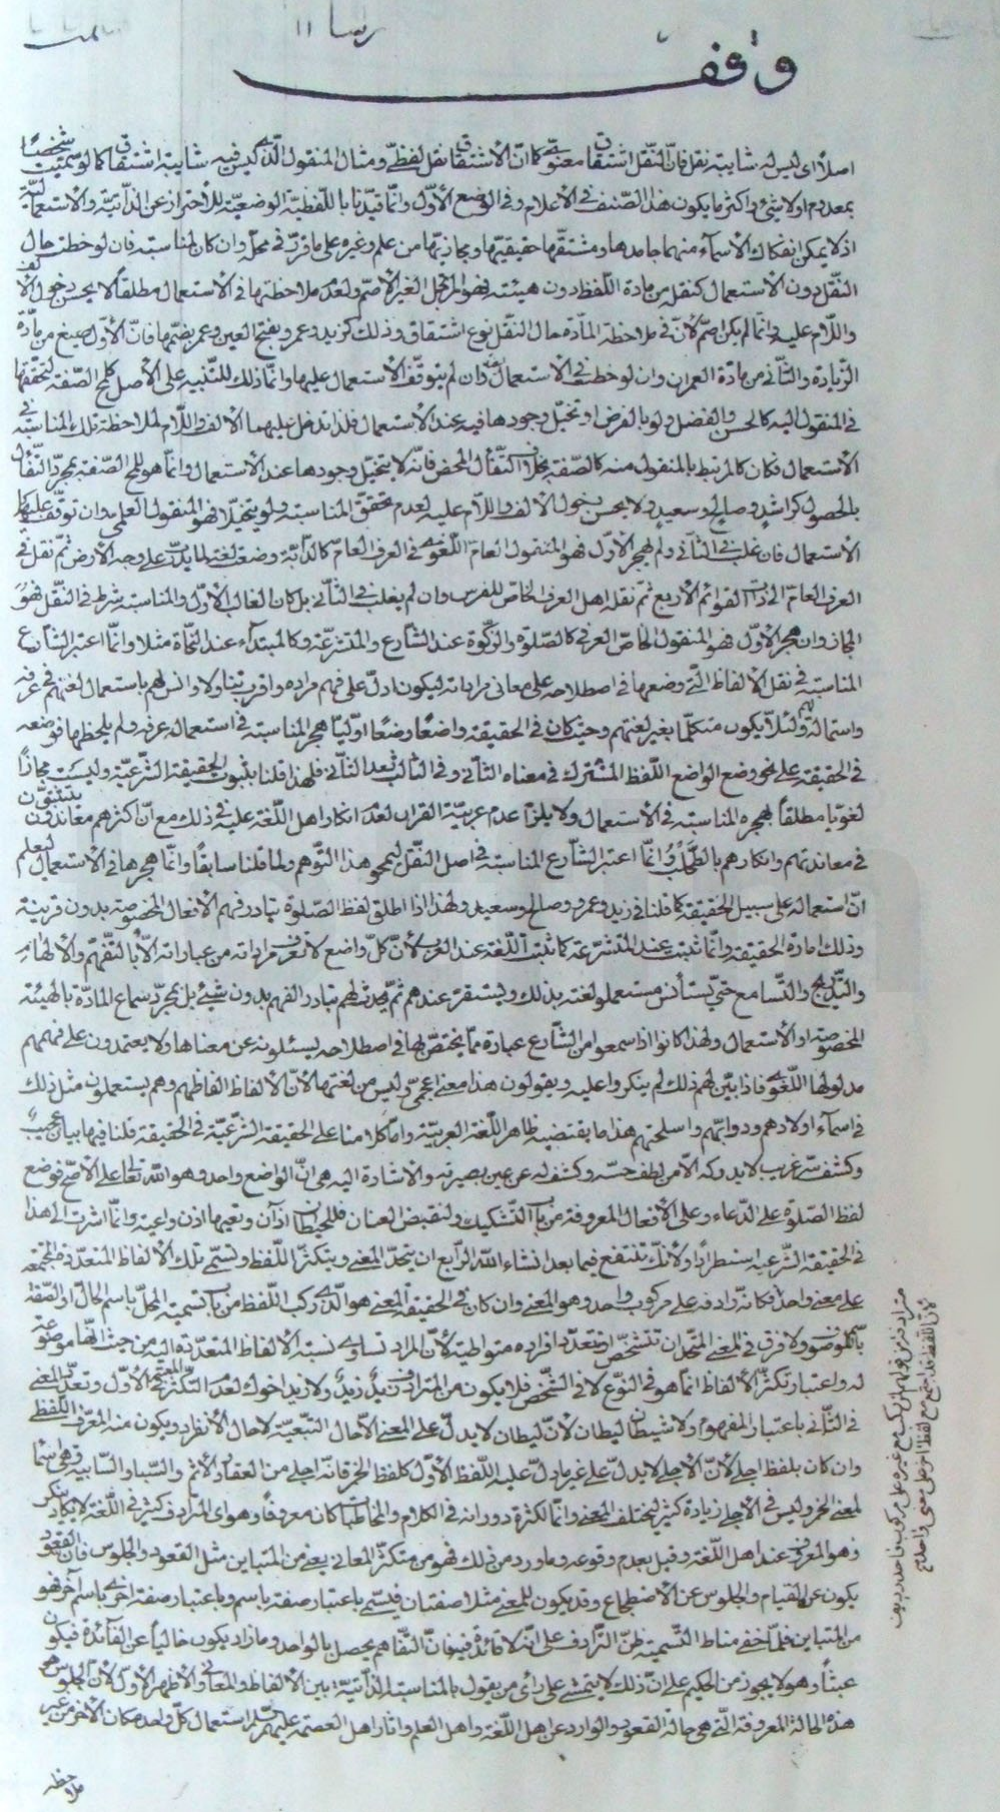 رسا ١١
وقف
اصلاً اى ليس له شايبة نقل فانّ النّقل اشتقاق معنوىّ كما انّ الاشتقاق نقل لفظىّ ومثال المنقول الّذى ليس فيه شايبة اشتقاق كما لو سمّيت شخصًا
بمعدوم اولا شئ واكثر ما يكون هذا الصّنف فى الاعلام وفى الوضع الأوّل وانّما قيّدنا باللّفظيّة الوضعيّة للأحتراز عن الذّاتيّة والاستعماليّة
اذ لا يمكن انفكاك الأسمآء منهما جامدها ومشتقّها حقيقتها ومجازيّها من علم وغيره على ما قرّر فى محلّه وان كان لمناسبة فان لوحظت حال
النّقل دون الاستعمال كنقله من مادة اللّفظ دون هيئته فهو المرتجل الغير الاصمّ ولعدم ملاحظتها فى الاستعمال مطلقاً لا يحسن دخول الالف
واللّام عليه وانّما لم يكن اصمّ لأنّ فى ملاحظة المادّة حال النّقل نوع اشتقاق وذلك كزيد وعمرو بفتح العين وعمر بضمّها فانّ الأوّل صيغ من مادّة
الزّيادة والثّانى من مادة العمران وان لوحظت فى الاستعمال فان لم يتوقّف الاستعمال عليها وانّما ذلك للتّنبيه على الأصل كلمح الصّفة لتحقّقها
فى المنقول اليه كالحسن والفضل ولو بالفرض او تخيّل وجودها فيه عند الاستعمال فلذا تدخل عليهما الالف واللّام لملاحظة تلك المناسبة فى
الاستعمال فكان كالمرتبط بالمنقول منه كالصّفة بخلاف التّفأل المحض فانّه لا يتخيّل وجودها عند الاستعمال وانّما هو للمح الصّفة بمجرّد التّفأل
بالحصول كراشدٍ وصالحٍ وسعيدٍ ولا يحسن دخول الالف واللّام عليه لعدم تحقّق المناسبة ولو تخيّلا فهو المنقول العلمى وان توقّف عليها
الاستعمال فان غلب فى الثّانى ولم يهجر الأوّل فهو المنقول العامّ اللّغوى فى العرف العامّ كالدابّة وضعت لغة لما يدبّ على وجه الأرض ثمّ نقل فى
العرف العامّ الى ذات القوائم الأربع ثمّ نقله اهل العرف الخاصّ للفرس وان لم يغلب فى الثّانى بل كان الغالب الأوّل والمناسبة شرط فى النّقل فهو
المجاز وان هجر الأوّل فهو المنقول الخاصّ العرفى كالصّلوة والزّكوة عند الشّارع والمتشرّعة وكالمبتدآء عند النّحاة مثلا وانّما اعتبر الشّارع
المناسبة فى نقل الألفاظ الّتى وضعها فى اصطلاحه على معانى مراداته ليكون ادلّ على فهم مراده واقرب تناولا وانس لهم باستعمال لغتهم فى عرفه
واستمالة لهم ولئلّا يكون متكلّما بغير لغتهم وحيث كان فى الحقيقة واضعًا وضعًا اوّليا هجر المناسبة فى استعماله عرفه ولم يلحظها فوضعه
فى الحقيقة على نحو وضع الواضع اللّفظ المشترك فى معناه الثّانى وفى الثّالث بعد الثّانى فلهذا قلنا بثبوت الحقيقة الشّرعيّة وليست مجازاً
لغويا مطلقاً لهجره المناسبة فى الاستعمال ولا يلزم عدم عربيّة القران لعدم انكار اهل اللّغة عليه فى ذلك مع انّ اكثرهم معاندون
فى معاندتهم وانكارهم بالطّحلب وانّما اعتبر الشّارع المناسبة فى اصل النّقل ليمحو هذا التّوهم ولما قلنا سابقًا وانّما هجرها فى الاستعمال ليعلم
انّ استعماله على سبيل الحقيقة كما قلنا فى زيد وعمرو وصالح وسعيد ولهذا اذا اطلق لفظ الصّلوة تبادر فهم الأفعال المخصوصة بدون قرينة
وذلك امارة الحقيقة وانّما تثبت عند المتشرّعة كما تثبت اللّغة عند العرب لأنّ كلّ واضع لا تعرف مراداته من عباراته الّا بالتّفهّم والألهام
والتّدريج والتّسامع حتى يستأنس مستعملو لغته بذلك ويستقرّ عندهم ثمّ يحدث لهم تبادر الفهم بدون شئ بل بمجرّد سماع المادّة بالهيئة
المخصوصة او الأستعمال ولهذا كانوا اذا سمعوا من الشّارع عبارة ممّا يختصّ لها فى اصطلاحه يسئلونه عن معناها ولا يعتمدون على فهمهم
مدلولها اللّغوى فاذا بيّن لهم ذلك لم ينكروا عليه ويقولون هذا معنى اعجمىّ وليس من لغتها لأنّ الألفاظ الفاظهم وهم يستعملون مثل ذلك
فى اسمآء اولادهم ودوابّهم واسلحتهم هذا ما يقتضيه ظاهر اللّغة العربيّة وامّا كلامنا على الحقيقة الشّرعيّة فى الحقيقة فلنا فيها بيان عجيب
وكشف سرّ غريب لا يدركه الّا من لطف حسّه وكشف له عن عين بصيرته والاشارة اليه هى انّ الواضع واحد وهو اللّه تعالى على الأصحّ فوضع
لفظ الصّلوة على الدّعاء وعلى الأفعال المعروفة من باب التّشكيك ولنقبض العنان فللحيطان آذان وتعيها اذن واعية وانّما اشرت الى هذا
فى الحقيقة الشّرعيه استطرادًا ولأنّك تنتفع فيما بعد انشاء اللّه الرّابع ان يتّحد المعنى ويتكثّر اللّفظ وتسمّى تلك الألفاظ المتعدّدة المجتمعة
على معنى واحد فكانّه رادفة على مركوب واحد وهو المعنى وان كان فى الحقيقة المعنى هو الّذى ركب اللّفظ من باب تسمية المحلّ باسم الحالّ او الصّفة
بالموصوف ولا فرق فى المعنى المتّحد ان تتشخّص او تعدّد افراده متواطية لأنّ المراد تساوى نسبة الألفاظ المتعدّدة اليه من حيث انّها موضوعة
له واعتبار تكثّر الألفاظ انّما هو فى النّوع لا فى الشّخص فلا يكون من المترادف زيدٌ زيدٌ ولا زيد اخوك لعدم التّكثّر المعتبر فى الأوّل وتعدّد المعنى
فى الثّانى باعتبار المفهوم ولا شيطان ليطان لأنّ ليطان لا يدلّ على المعنى الّا حال التّبعيّة لا حال الأنفراد ويكون منه المعرّف اللّفظى
وان كان بلفظ اجلى لأنّ الأجلى لا يدلّ على غير ما دلّ عليه اللّفظ الأوّل كلفظ الخمر فانّه اجلى من العقار والأثم والسّباء والسّابية وهى اسما
لمعنى الخمر وليس فى الأجلى زيادة كثير ليختلف المعنى وانّما لكثرة دورانه فى الكلام والمخاطبات كان معروفًا وهو اى المترادف كثير فى اللّغة لا يكاد ينكر
وهو المعروف عند اهل اللّغة وقيل بعدم وقوعه وما ورد من ذلك فهو من متكثّر المعانى يعنى من المتباين مثل القعود والجلوس فانّ القعود
يكون عن القيام والجلوس عن الاضطجاع وقد يكون للمعنى مثلا صفتان فيسمّى باعتبار صفة باسم وباعتبار صفة اخرى باسم آخر فهو
من المتباين فلمّا خفى مناط التّسمية ظنّ التّرادف على انّه لا فائدة فيه فانّ التّفاهم يحصل بالواحد وما زاد يكون خالياً عن الفآئدة فيكون
عبثاً وهو لا يجوز من الحكيم على انّ ذلك لا يتمشّى على رأى من يقول بالمناسبة الذّاتيّة بين الألفاظ والمعانى والأظهر الأوّل لأنّ الجلوس هو
هذه الحالة المعروفة الّتى هى حالة القعود والوارد عن اهل اللّغة واهل العلم واثار اهل العصمة عليهم السّلام استعمال كلّ واحد مكان الآخر من غير
ملاحظة